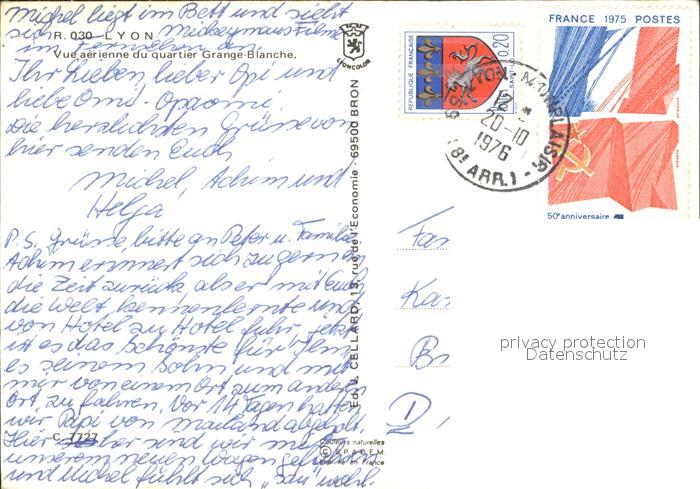 Michel liegt im Bett und sieht
sich Mickeymaus Filme
im Fernsehen an.
R. 030 - LYON
Vue aérienne du quartier Grange-Blanche.
Ihr Lieben, lieber Opi und
liebe Omi
die herzlichsten Grüsse von
hier senden Euch
Michel, Achim und
Helga
P.S. Grüsse bitte an Peter u. Familie
Achim erinnert sich zu gern an
die Zeit zurück als er mit Euch
die Welt kennenlernte und
von Hotel zu Hotel fuhr, jetzt
ist es das Schönste für Ihn
es seinem Sohn und mit
mir von einem Ort zum andern
Ort zu fahren. Vor 14 Tagen hatten
wir Papi von Mailand abgeholt.
Hierher sind wir mit
unserem neuen Wagen gefahren
und Michel fühlt sich "sau" wohl.
C 7727
LYONCOLOR
Ed. V. CELLARD, 13, rue de l'Économie - 69500 BRON
Couleurs naturelles
© S.P.A.D.E.M.
Imprimé en France
REPUBLIQUE FRANÇAISE
0,20
SAINT-LO
FRANCE 1975 POSTES
50e anniversaire
MONPLAISIR
20-10
1976
(8e ARR.)
Fa
Ka
B
D
privacy protection
Datenschutz